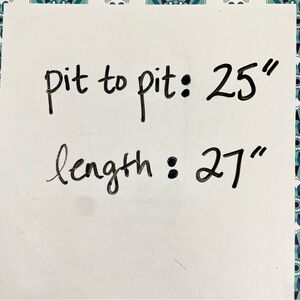 pit to pit: 25"
length: 27"